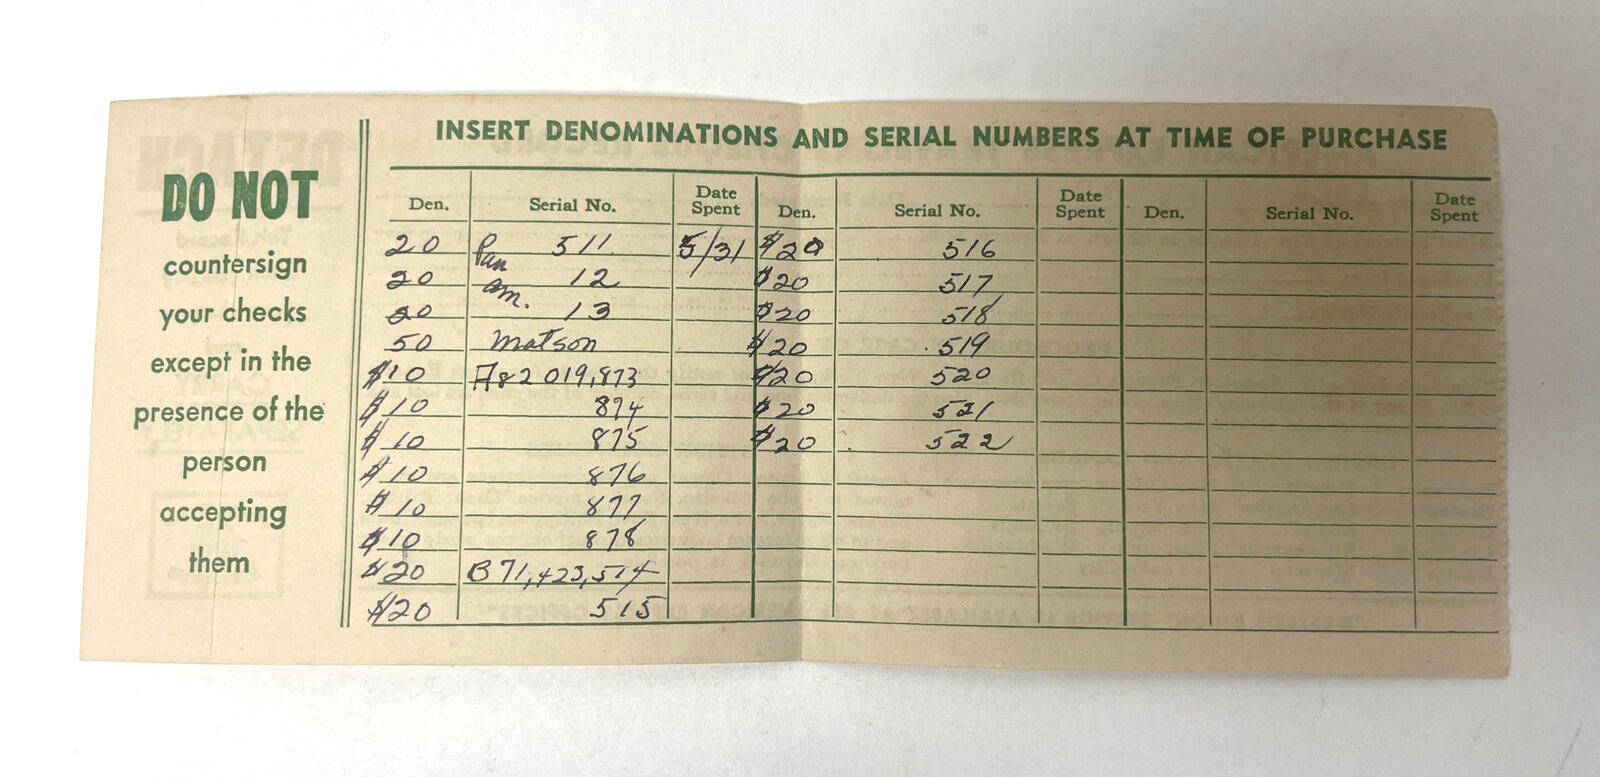 INSERT DENOMINATIONS AND SERIAL NUMBERS AT TIME OF PURCHASE
DO NOT
countersign
your checks
except in the
presence of the
person
accepting
them
Den. Serial No. Date Spent Den. Serial No. Date Spent Den. Serial No. Date Spent
20 Pan 511 5/31 $20 516
20 am. 12 $20 517
20 13 $20 518
50 Matson $20 519
$10 A82 019,873 $20 520
$10 874 $20 521
$10 875 $20 522
$10 876
$10 877
$10 878
$20 B71,423,514
$20 515